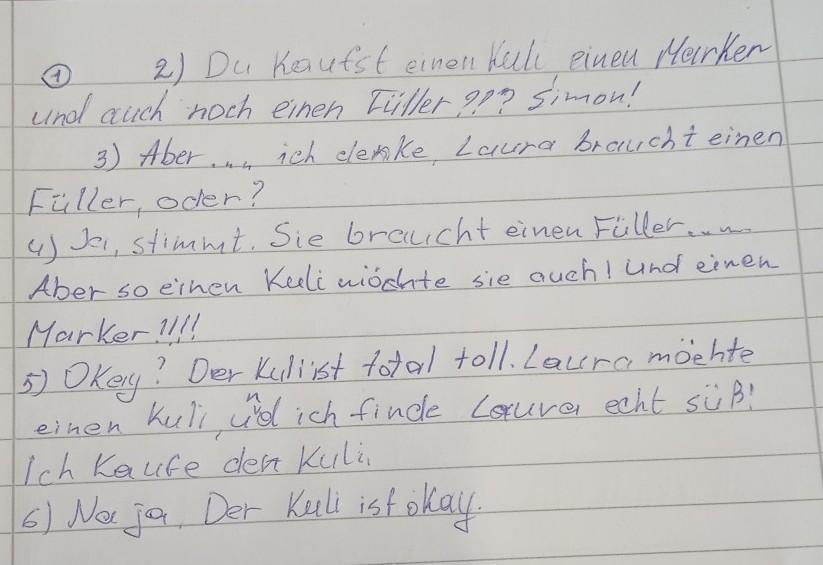 ① 2) Du kaufst einen Kuli, einen Marken
und auch noch einen Füller??? Simon!
3) Aber.... ich denke, Laura braucht einen
Füller, oder?
4) Ja, stimmt. Sie braucht einen Füller.....
Aber so einen Kuli möchte sie auch! Und einen
Marker!!!!
5) Okay? Der Kuli ist total toll. Laura möchte
einen Kuli, und ich finde Laura echt süß!
Ich kaufe den Kuli.
6) Na ja, Der Kuli ist okay.